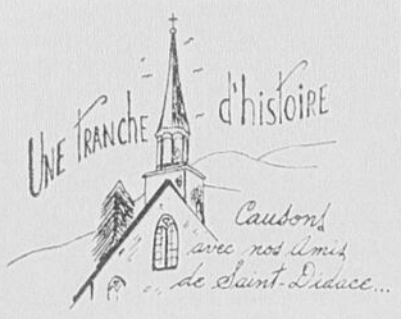 UNE TRANCHE d'histoire
Causons
avec nos amis
de Saint-Didace...